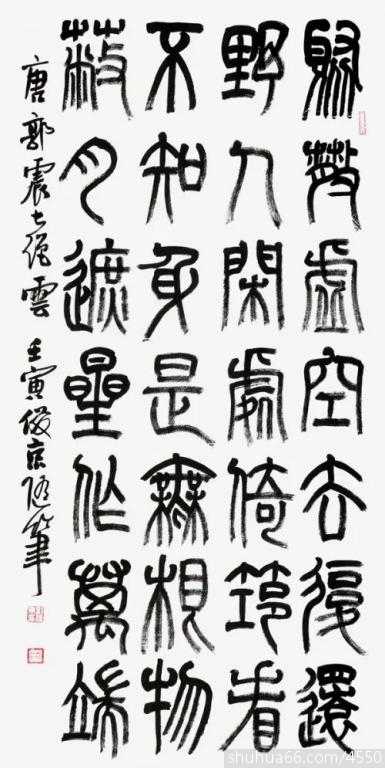 聚散虛空去復還
野人閑處倚筇看
不知身是無根物
蔽月遮星作萬端
唐郭震七絕雲 壬寅俊京隨筆
shuhua66.com/4550